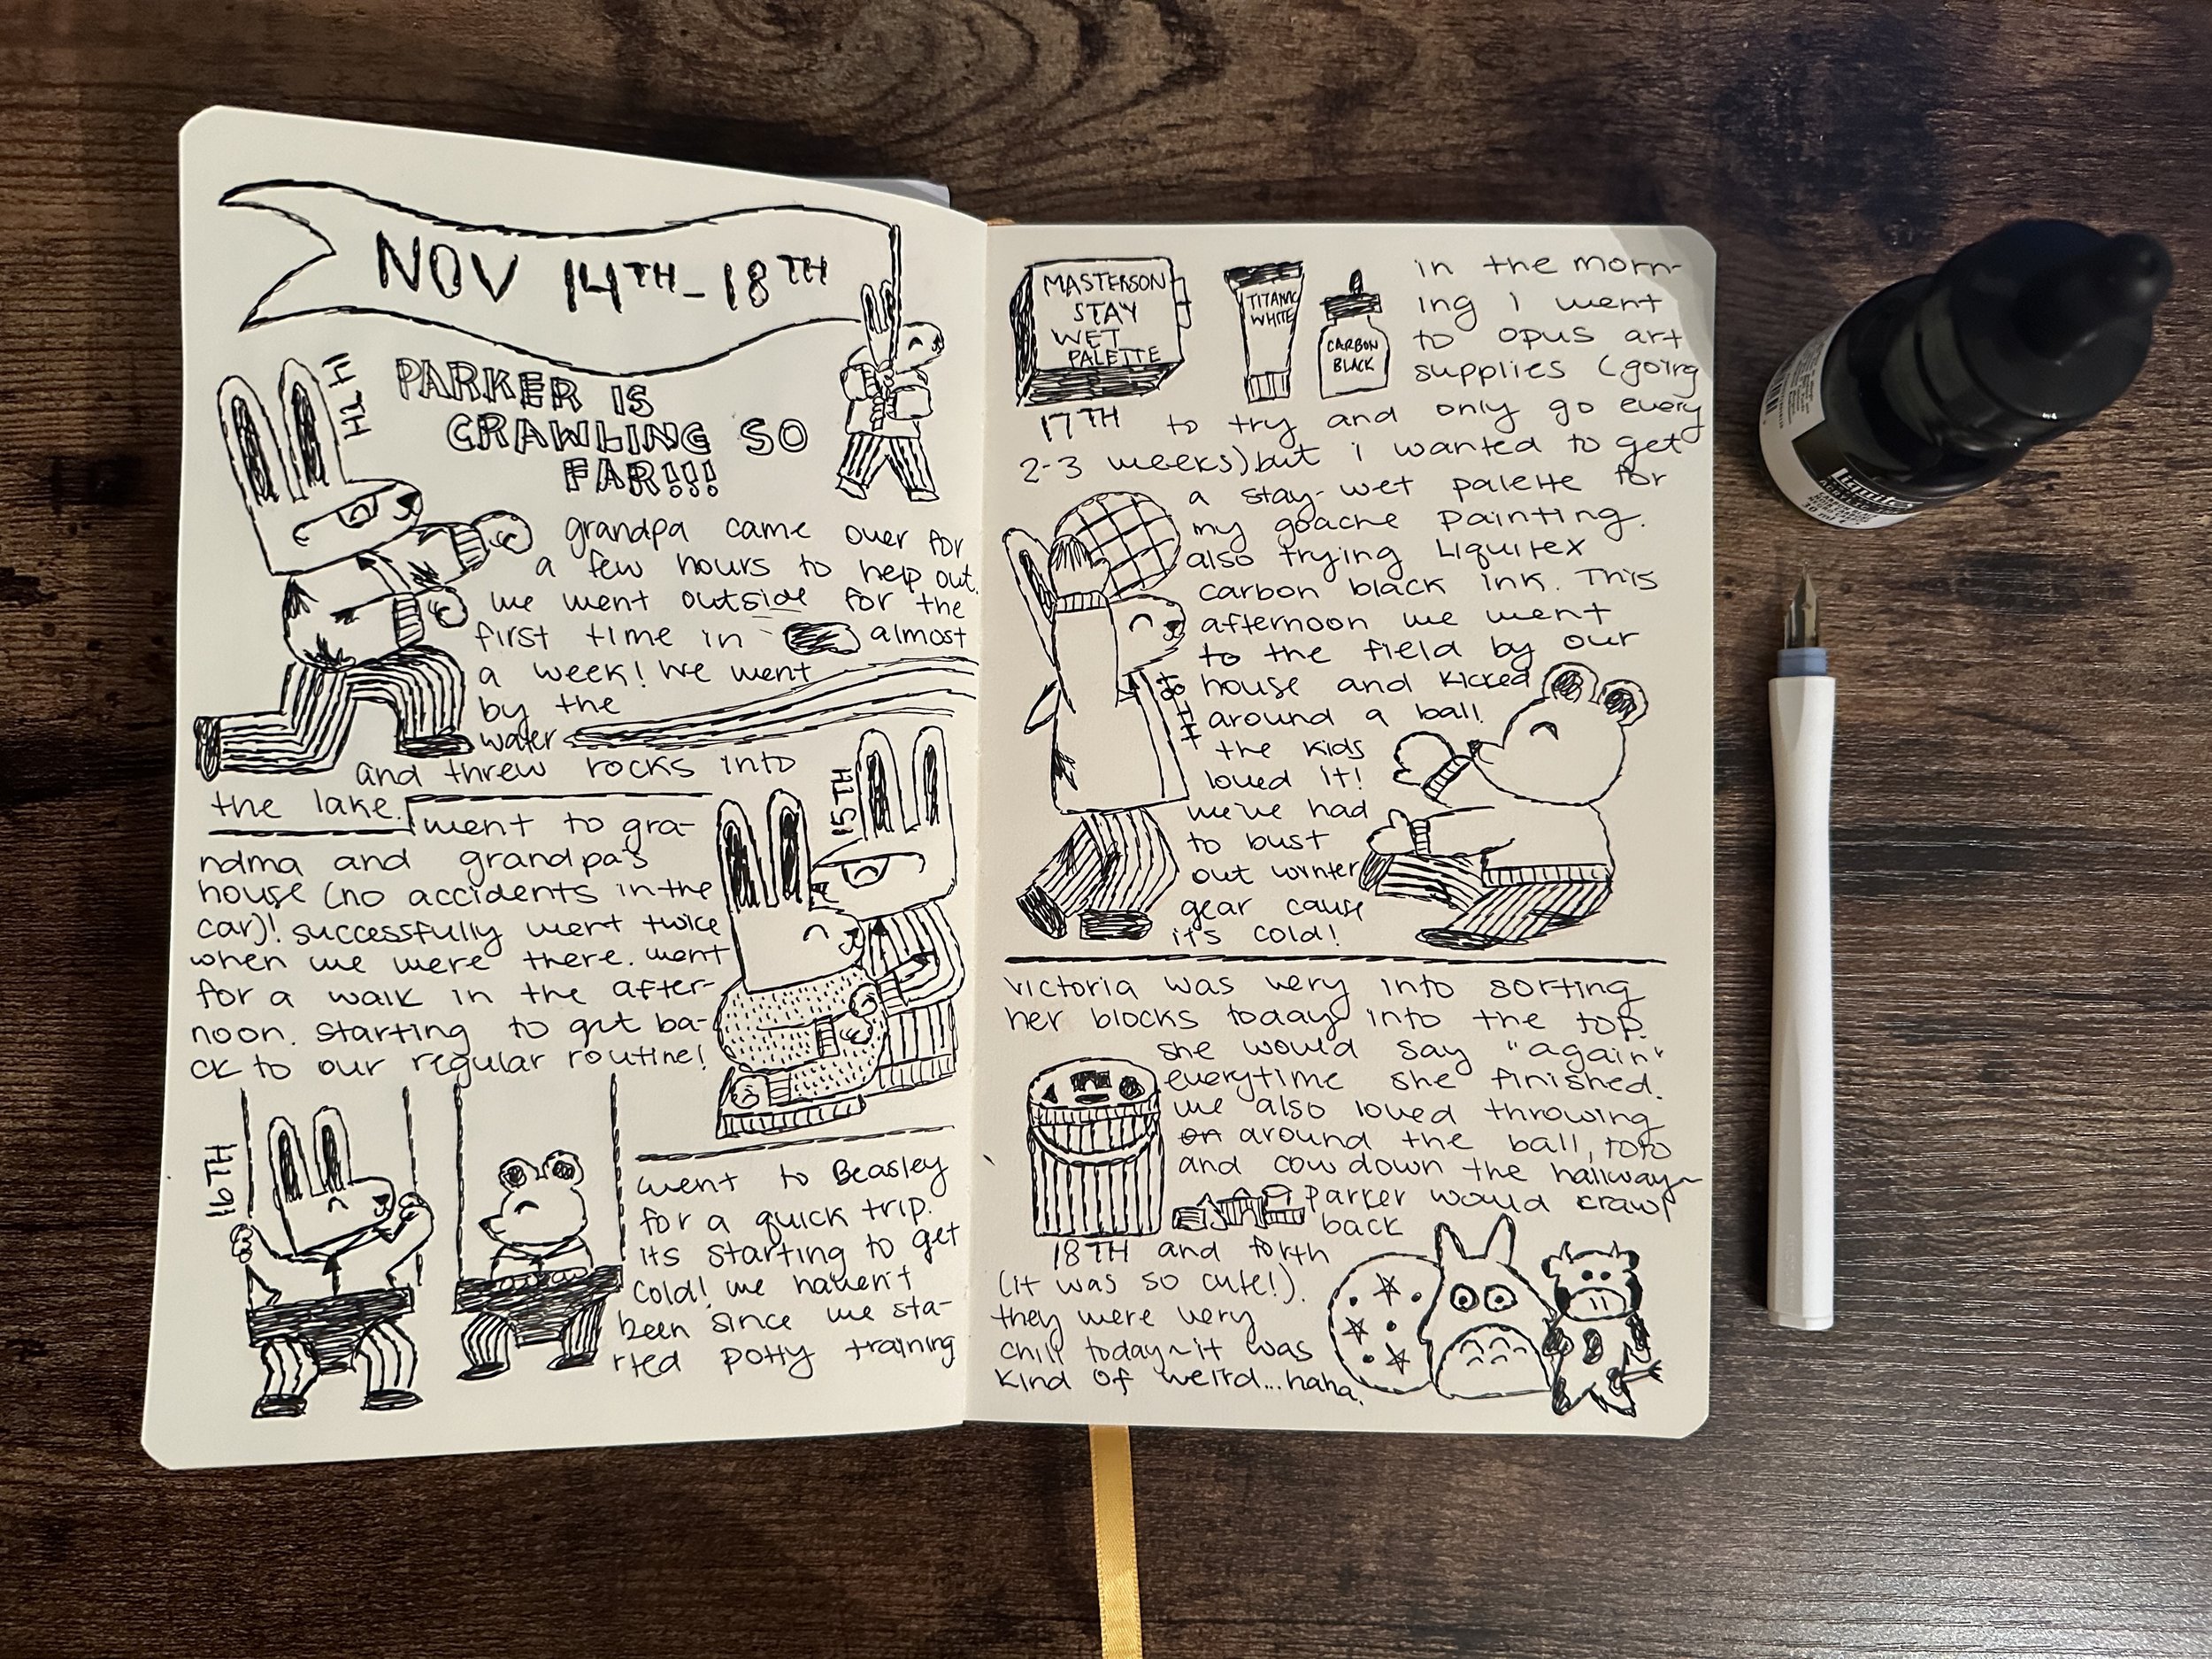 NOV 14TH-18TH
14TH
PARKER IS
CRAWLING SO
FAR!!!
grandpa came over for
a few hours to help out.
we went outside for the
first time in almost
a week! We went
by the
water
and threw rocks into
the lake.
15TH
went to gra-
ndma and grandpa's
house (no accidents in the
car)! successfully went twice
when we were there. went
for a walk in the after-
noon. starting to get ba-
ck to our regular routine!
16TH
went to Beasley
for a quick trip.
its starting to get
cold! we haven't
been since we sta-
rted potty training
MASTERSON
STAY
WET
PALETTE
TITANIC
WHITE
CARBON
BLACK
17TH
in the morn-
ing i went
to opus art
supplies (going
to try and only go every
2-3 weeks) but i wanted to get
a stay-wet palette for
my goache painting.
also trying Liquitex
carbon black ink. This
afternoon we went
to the field by our
house and kicked
around a ball.
the kids
loved it!
we've had
to bust
out winter
gear cause
it's cold!
victoria was very into sorting
her blocks today into the top.
she would say "again"
everytime she finished.
we also loved throwing
on around the ball, toto
and cow down the hallway~
parker would crawl
back
18TH and forth
(it was so cute!).
they were very
chill today~it was
kind of weird...haha.
Liquitex